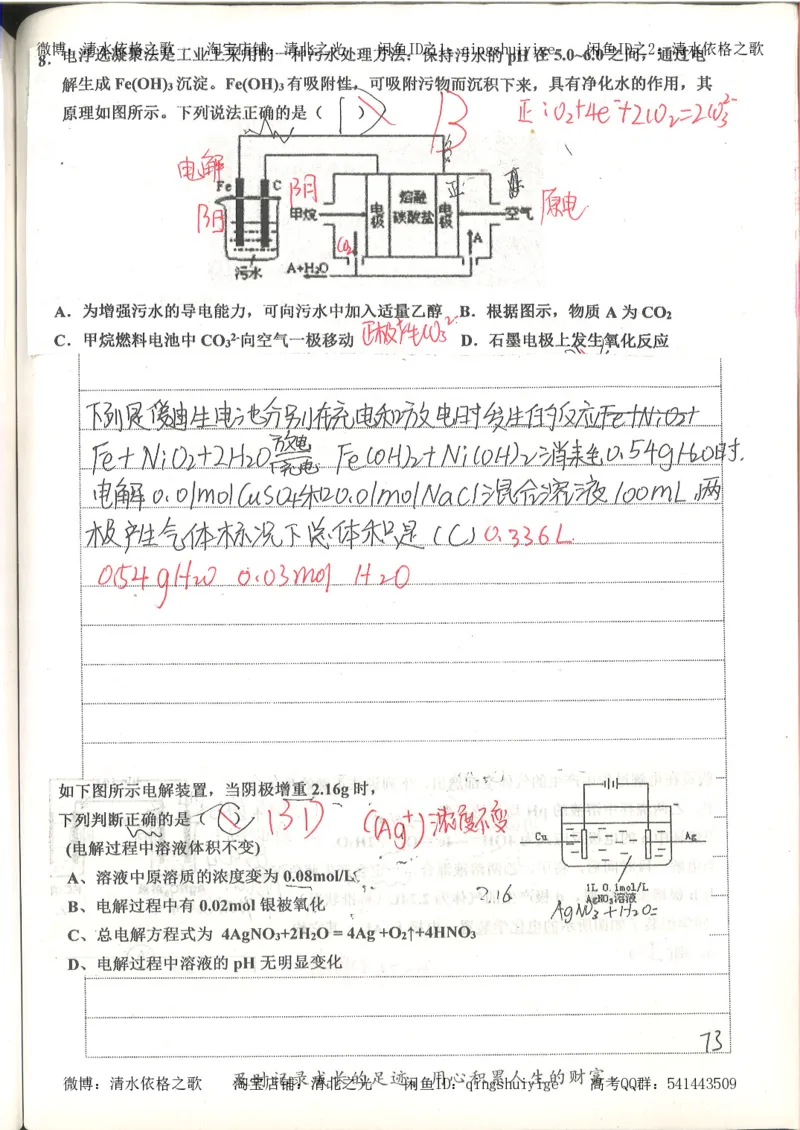 微博：清水依格之歌 淘宝店铺：清北之光 闲鱼ID之1：qingshuiyige 闲鱼ID之2：清水依格之歌
8. 电浮选凝聚法是工业上采用的一种污水处理方法：保持污水的 pH 在 5.0~6.0 之间，通过电
解生成 Fe(OH)₃ 沉淀。Fe(OH)₃ 有吸附性，可吸附污物而沉积下来，具有净化水的作用，其
原理如图所示。下列说法正确的是（ D ） B
正：O₂+4e⁻+2CO₂=2CO₃²⁻
电解
Fe C
阴 阳
甲烷
电极
熔融碳酸盐
电极
正
空气
原电
CO₂
A
污水
A+H₂O
A．为增强污水的导电能力，可向污水中加入适量乙醇 B．根据图示，物质 A 为 CO₂
C．甲烷燃料电池中 CO₃²⁻向空气一极移动 正极产生CO₃²⁻ D．石墨电极上发生氧化反应
下列是镍电生电池分别在充电和放电时发生的反应Fe+NiO₂+
Fe+NiO₂+2H₂O 放电 充电 Fe(OH)₂+Ni(OH)₂当耗0.54gH₂O时.
电解0.01molCuSO₄和0.01molNaCl混合溶液100mL,两
极产生气体标况下总体积是 (C) 0.336L
0.54gH₂O 0.03mol H₂O
如下图所示电解装置，当阴极增重 2.16g 时，
下列判断正确的是（ ） (B) C(Ag⁺)浓度不变
(电解过程中溶液体积不变)
Cu Ag
1L 0.1mol/L
AgNO₃溶液
A、溶液中原溶质的浓度变为 0.08mol/L
2.16
AgNO₃+H₂O=
B、电解过程中有 0.02mol 银被氧化
C、总电解方程式为 4AgNO₃+2H₂O = 4Ag +O₂↑+4HNO₃
D、电解过程中溶液的 pH 无明显变化
73
及时记录成长的足迹 用心积累人生的财富
微博：清水依格之歌 淘宝店铺：清北之光 闲鱼ID：qingshuiyige 高考QQ群：541443509